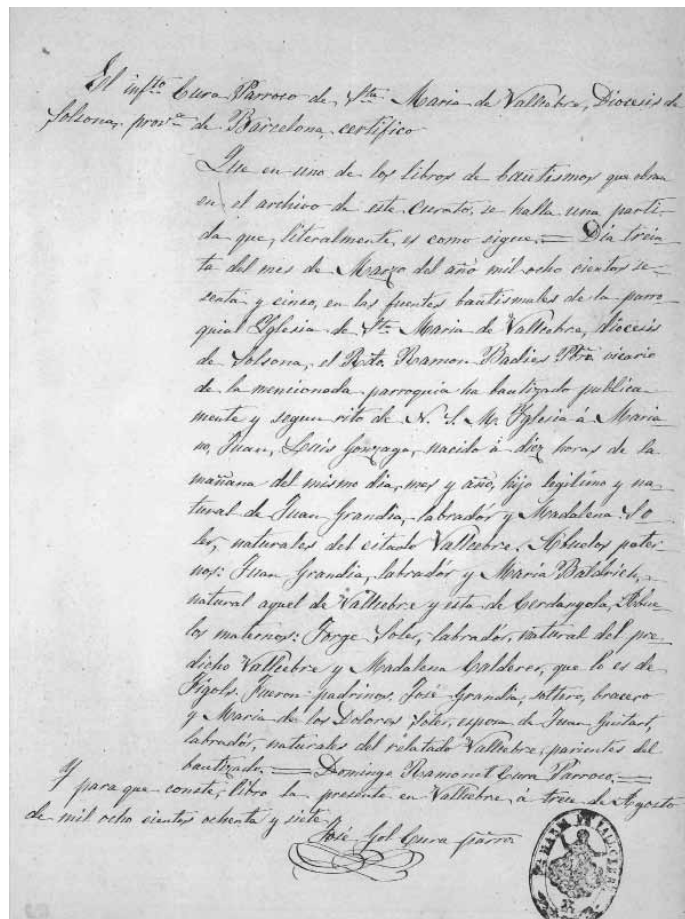 El inf.to Cura Párroco de Sta. Maria de Vallcebre, Diocesis de
Solsona, prov.a de Barcelona, certifico
Que en uno de los libros de bautismos que obran
en el archivo de este Curato, se halla una parti-
da que, literalmente, es como sigue. = Dia trein-
ta del mes de Marzo del año mil ocho cientos se-
senta y cinco, en las fuentes bautismales de la parro-
quial Yglesia de Sta. Maria de Vallcebre, diocesis
de Solsona, el Rdo. Ramon Badies Pbro. vicario
de la mencionada parroquia ha bautizado publica-
mente y segun rito de N. S. M. Yglesia á Maria-
no, Juan, Luis Gonzaga, nacido á diez horas de la
mañana del mismo dia, mes y año, hijo legitimo y na-
tural de Juan Grandia, labradór y Madalena So-
ler, naturales del citado Vallcebre. Abuelos pater-
nos: Juan Grandia, labradór y María Baldrich,
natural aquel de Vallcebre y esta de Cerdanyola, Abue-
los maternos: Jorge Soler, labradór, natural del pre-
dicho Vallcebre y Madalena Calderer, que lo es de
Fígols. Fueron padrinos José Grandia, soltero, bracero
y Maria de los Dolores Soler, esposa de Juan Guitart,
labradór, naturales del relatado Vallcebre, parientes del
bautizado. = Domingo Ramonet Cura Parroco. =
Y para que conste, libro la presente en Vallcebre, á trece de Agosto
de mil ocho cientos ochenta y siete.
José Gol Cura párro